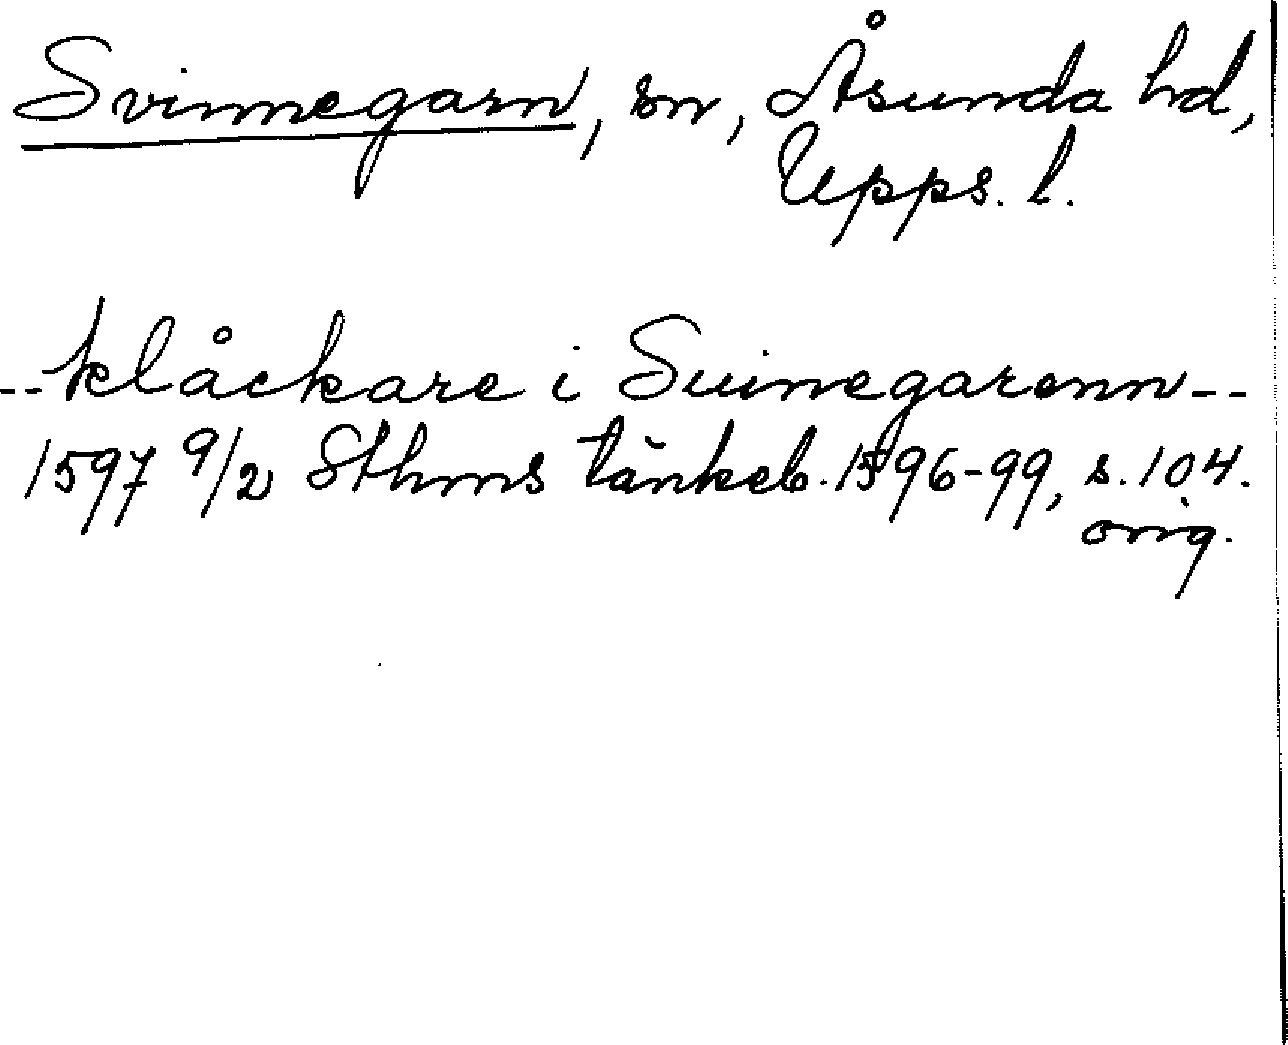 Svinnegarn, sn, Åsunda hd,
Upps. l.
-- klåckare i Suinegarenn --
1597 9/2 Sthms tänkeb. 1596-99, s. 104.
orig.